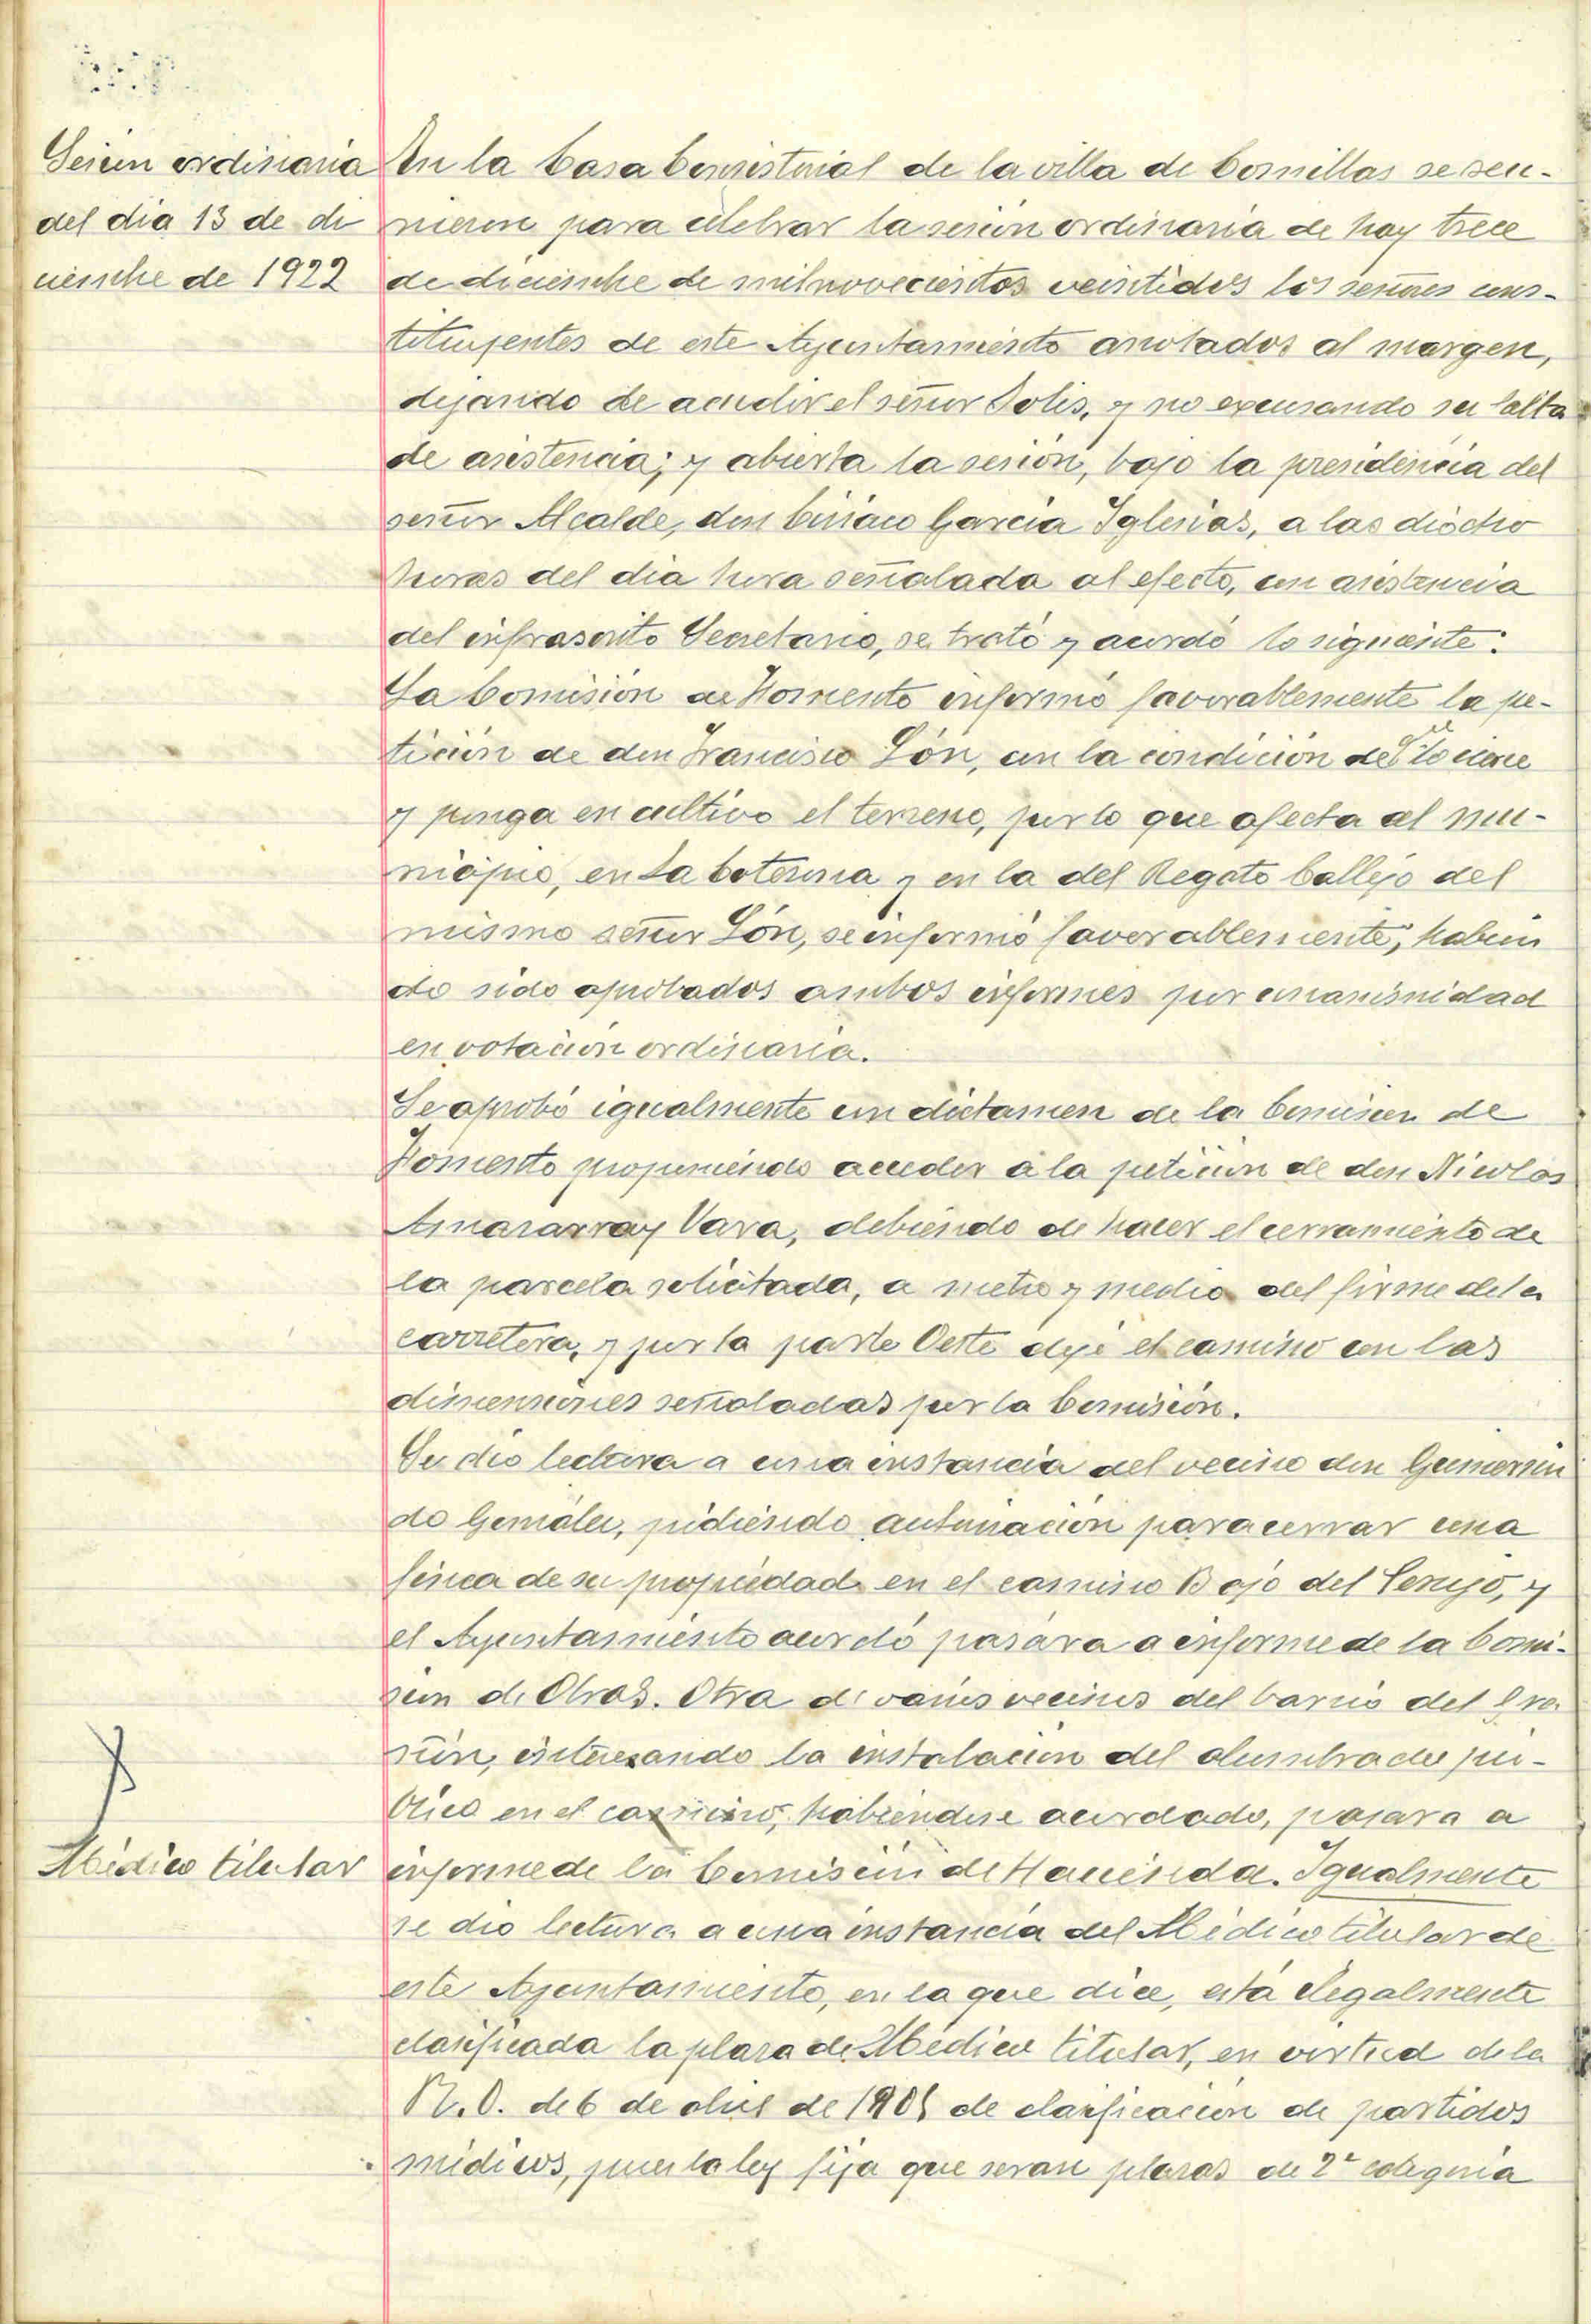 Sesion ordinaria
del dia 13 de di
ciembre de 1922
En la Casa Consistorial de la villa de Comillas se reu-
nieron para celebrar la sesión ordinaria de hoy trece
de diciembre de mil novecientos veintidós los señores cons-
tituyentes de este Ayuntamiento anotados al margen,
dejando de acudir el señor Solis, y no excusando su falta
de asistencia; y abierta la sesión, bajo la presidencia del
señor Alcalde, don Ciriaco Garcia Iglesias, a las dieciocho
horas del dia hora señalada al efecto, con asistencia
del infrascrito Secretario, se trató y acordó lo siguiente:
La Comisión de Fomento informó favorablemente la pe-
tición de don Francisco Lón, con la condición de que lo cierre
y ponga en cultivo el terreno, por lo que afecta al mu-
nicipio, en La Coteruca y en la del Regato Callejo del
mismo señor Lón, se informó favorablemente, habien
do sido aprobados ambos informes por unanimidad
en votación ordinaria.
Se aprobó igualmente un dictamen de la Comision de
Fomento proponiendo acceder a la petición de don Nicolas
Vara, debiendo de hacer el cerramiento de
la parcela solicitada, a metro y medio del firme de la
carretera, y por la parte Oeste deje el camino con las
dimensiones señaladas por la Comisión.
Se dio lectura a una instancia del vecino don Gumersin
do González, pidiendo autorización para cerrar una
finca de su propiedad en el camino Bajo del y
el Ayuntamiento acordó pasara a informe de la Comi-
sión de Obras. Otra de varios vecinos del barrio del
interesando la instalación del alumbrado pú-
blico en el camino, habiendose acordado, pasara a
Médico titular
informe de la Comisión de Hacienda. Igualmente
se dio lectura a una instancia del Médico titular de
este Ayuntamiento, en la que dice, está ilegalmente
clasificada la plaza de Médico titular, en virtud de la
R.O. de 6 de abril de 1905 de clasificación de partidos
médicos, pues la ley fija que seran plazas de 2ª categoria